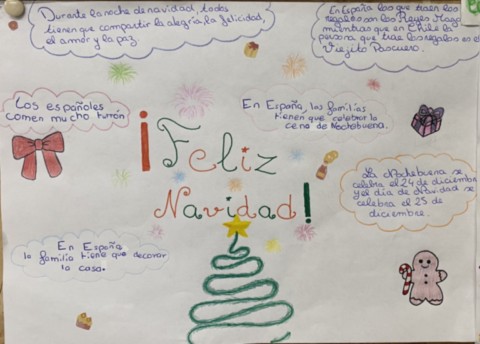 Durante la noche de navidad, todos
tienen que compartir la alegría, la felicidad,
el amor y la paz
En España los que traen los
regalos son los Reyes Mago
mientras que en Chile la
persona que trae los regalos es el
Viejito Pascuero.
Los españoles
comen mucho turrón
En España, las familias
tienen que celebrar la
cena de Nochebuena.
¡Feliz
Navidad!
La Nochebuena se
celebra el 24 de diciembre
y el día de Navidad se
celebra el 25 de
diciembre.
En España
la familia tiene que decorar
la casa.